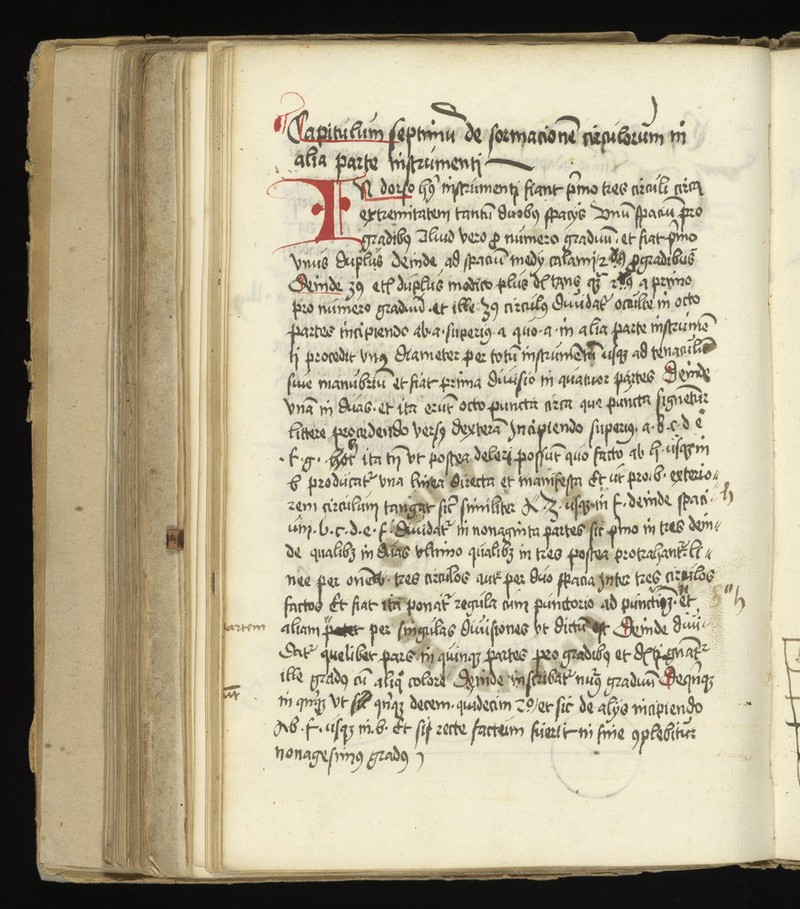 Capitulum septimū de formacionē circulorum in
alia parte instrumenti
IN dorso hꝰ instrumenti fiant pͥmo tres circuli circa
extremitatem tantū duobꝰ spacijs Vnū spaciū pro
gradibꝰ Aliud vero ꝓ numero graduū. et fiat pͥmo
vnus duplus deinde ad spaciū medij calami ꝓ gradibus
Deinde 3ꝰ etiā duplus modico plus a primo
pro numero graduū. et ille 3ꝰ circulꝰ diuidatᷣ occulte in octo
partes incipiendo ab. a. superiꝰ a quo. a. in alia parte instrumē
ti procedit vnꝰ diameter per totū instrumētū usqꝫ ad tenaculū
siue manubriū et fiat prima diuisio in quatuor partes Deinde
vnā in duas. et ita erūt octo puncta circa que puncta signētur
littere procedendo versꝰ dexterā Incipiendo superiꝰ. a. b. c. d e
. f. g. h. ita tn̄ vt postea deleri possūt quo facto ab h. usqꝫ in
b producatᷣ vna linea directa et manifesta Et ut pro. b. exterio
rem circulum tangat sic similiter usqꝫ in f. deinde spaci h
um. b. c. d. e. f. diuidatᷣ in nonaginta partes sic pͥmo in tres dein
de qualibꝫ in duas vltimo qualibꝫ in tres postea protrahantᷣ li
nee per tres circulos aut per duo spacia Inter tres circulos
factos Et fiat ita ponatᷣ regula cum punctorio ad punctū h. et h
aliam partem per singulas diuisiones vt dictū est Deinde diui
datᷣ quelibet pars in quinqꝫ partes pro gradibꝰ et
ille gradꝰ cū aliqͦ colore Deinde inscribatᷣ nūꝰ graduū Deqͥnqꝫ
in qͥnqꝫ vt sit qͥnqꝫ decem. quidecim 20 et sic de alijs incipiendo
Ab. f. usqꝫ in. b. Et si recte factum fuerit in fine ꝯplebitur
nonagesimꝰ gradꝰ